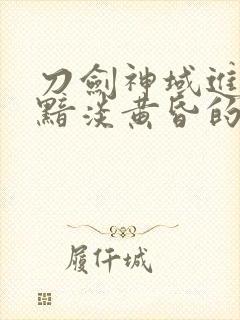 刀劍神域進
黯淡黃昏的
履仟城